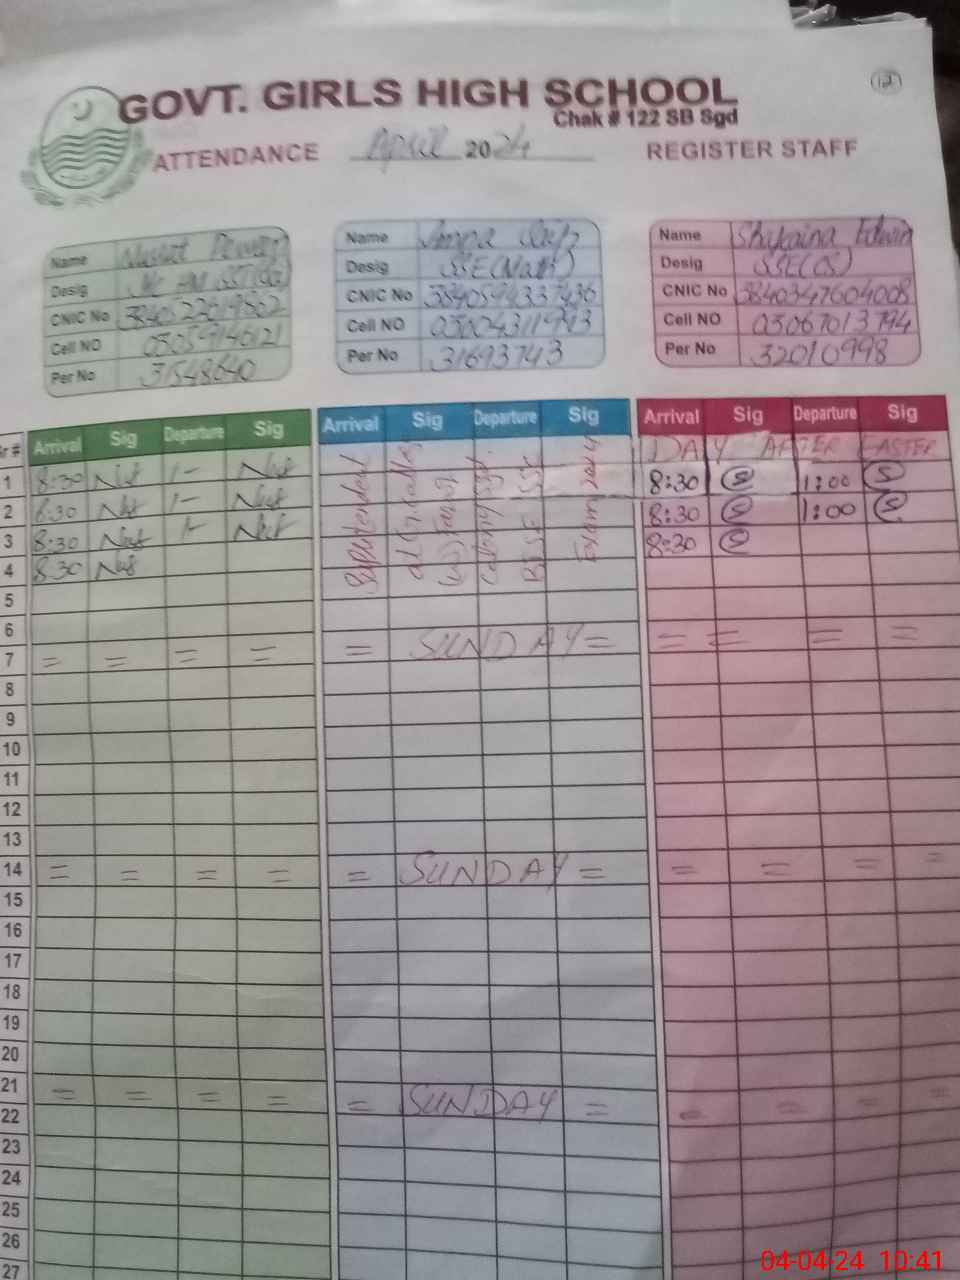 12
GOVT. GIRLS HIGH SCHOOL
Chak # 122 SB Sgd
ATTENDANCE April 2024 REGISTER STAFF
Name
Desig
CNIC No
Cell NO 03059146121
Per No 31548640
Name
Desig SSE(Math)
CNIC No 3840594337436
Cell NO
Per No 31693743
Name Shakaina Edwin
Desig SSE(CS)
CNIC No 3840347604008
Cell NO 03067013794
Per No 32010998
Sr # Arrival Sig Departure Sig Arrival Sig Departure Sig Arrival Sig Departure Sig
DAY AFTER EASTER
1 8:30 Nus 1- Nus 8:30 S 1:00 S
2 8:30 Nus 1- Nus 8:30 S 1:00 S
3 8:30 Nus 1- Nus 8:30 S
4 8:30 Nus
5
6
7 = = = = = SUNDAY = = = = =
8
9
10
11
12
13
14 = = = = = SUNDAY = = = = =
15
16
17
18
19
20
21 = = = = = SUNDAY = = = = =
22
23
24
25
26
27
Exam 2024
04-04-24 10:41